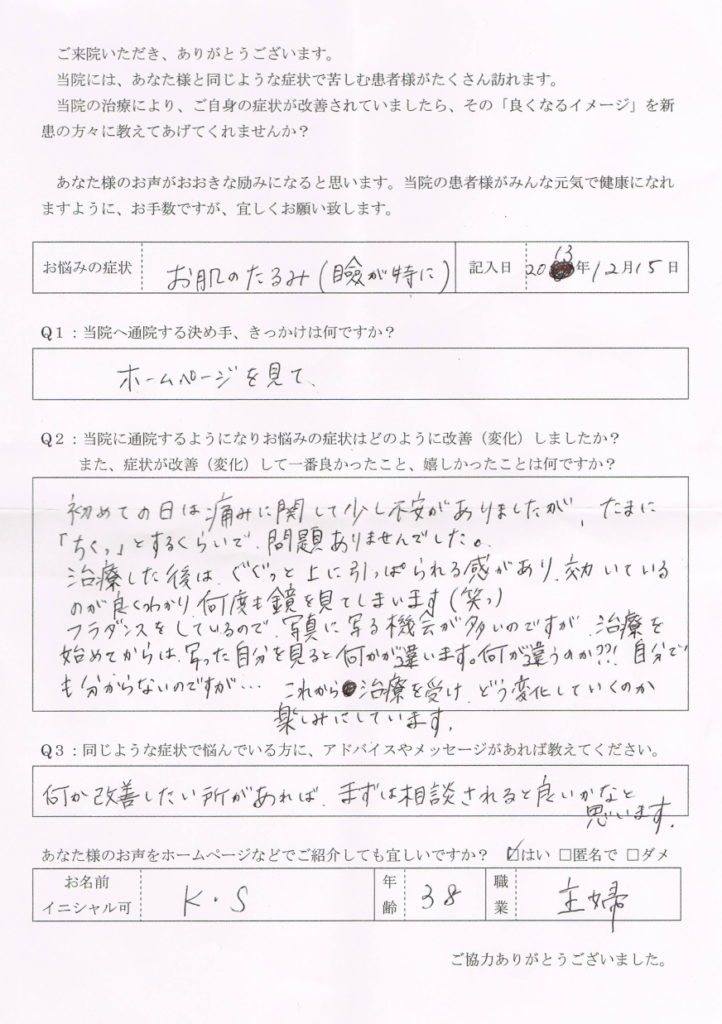 ご来院いただき、ありがとうございます。
当院には、あなた様と同じような症状で苦しむ患者様がたくさん訪れます。
当院の治療により、ご自身の症状が改善されていましたら、その「良くなるイメージ」を新
患の方々に教えてあげてくれませんか？
あなた様のお声がおおきな励みになると思います。当院の患者様がみんな元気で健康になれ
ますように、お手数ですが、宜しくお願い致します。
お悩みの症状 お肌のたるみ(瞼が特に) 記入日 2013年12月15日
Q1：当院へ通院する決め手、きっかけは何ですか？
ホームページを見て、
Q2：当院に通院するようになりお悩みの症状はどのように改善（変化）しましたか？
また、症状が改善（変化）して一番良かったこと、嬉しかったことは何ですか？
初めての日は痛みに関して少し不安がありましたが、たまに
「ちくっ」とするくらいで、問題ありませんでした。
治療した後は、ぐぐっと上に引っぱられる感があり、効いている
のが良くわかり、何度も鏡を見てしまいます(笑っ)
フラダンスをしているので、写真に写る機会が多いのですが、治療を
始めてからは、写った自分を見ると何かが違います。何が違うのか??! 自分で
も分からないのですが… これから治療を受け、どう変化していくのか
楽しみにしています。
Q3：同じような症状で悩んでいる方に、アドバイスやメッセージがあれば教えてください。
何か改善したい所があれば、まずは相談されると良いかなと
思います。
あなた様のお声をホームページなどでご紹介しても宜しいですか？ ☑はい □匿名で □ダメ
お名前 イニシャル可 K・S 年齢 38 職業 主婦
ご協力ありがとうございました。